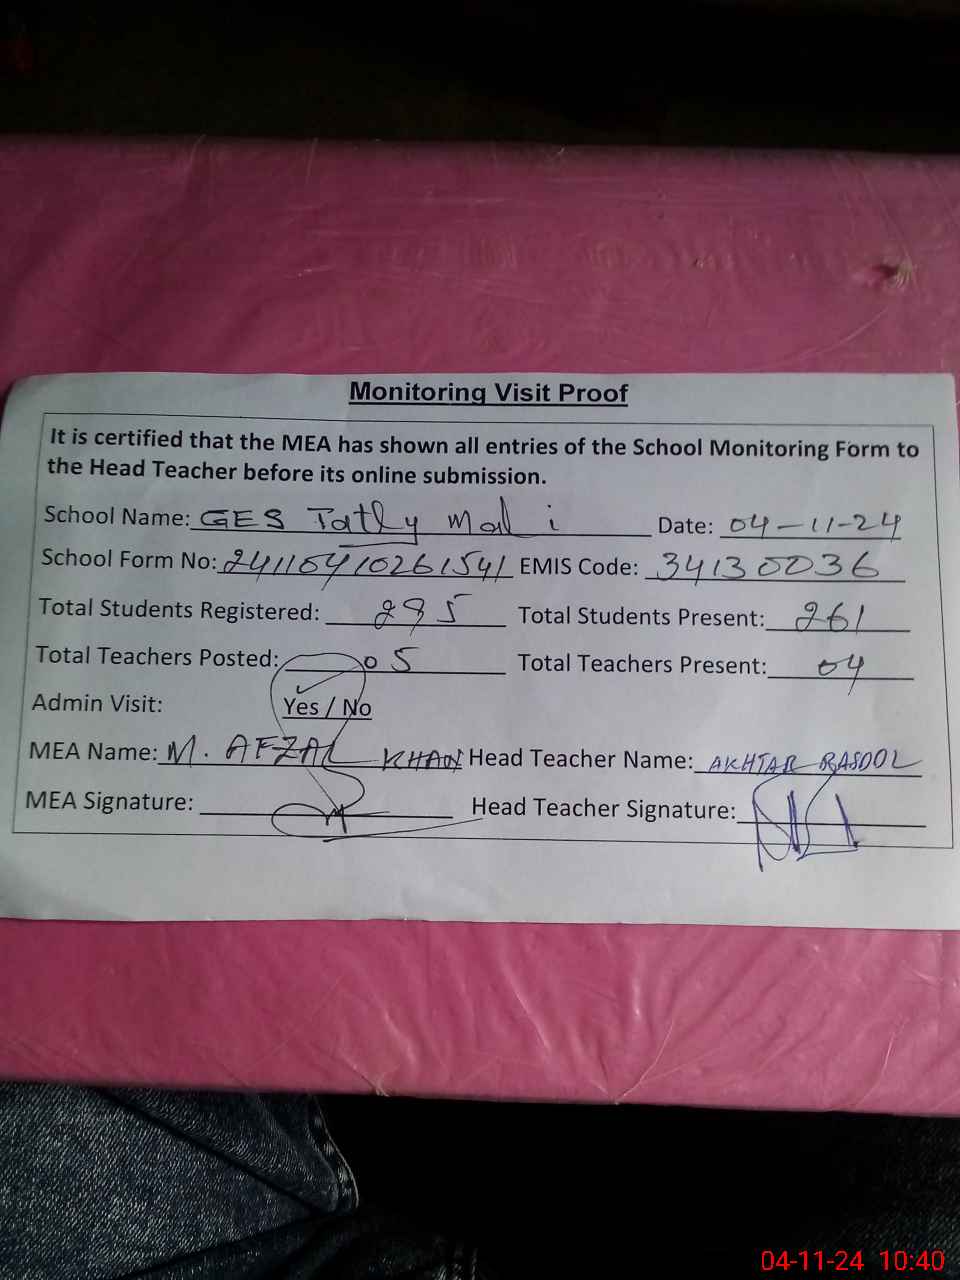 Monitoring Visit Proof
It is certified that the MEA has shown all entries of the School Monitoring Form to
the Head Teacher before its online submission.
School Name: GES Tatly Mali Date: 04-11-24
School Form No: 24110410261541 EMIS Code: 34130036
Total Students Registered: 295 Total Students Present: 261
Total Teachers Posted: 05 Total Teachers Present: 04
Admin Visit: Yes / No
MEA Name: M. AFZAL KHAN Head Teacher Name: AKHTAR RASOOL
MEA Signature: Head Teacher Signature:
04-11-24 10:40